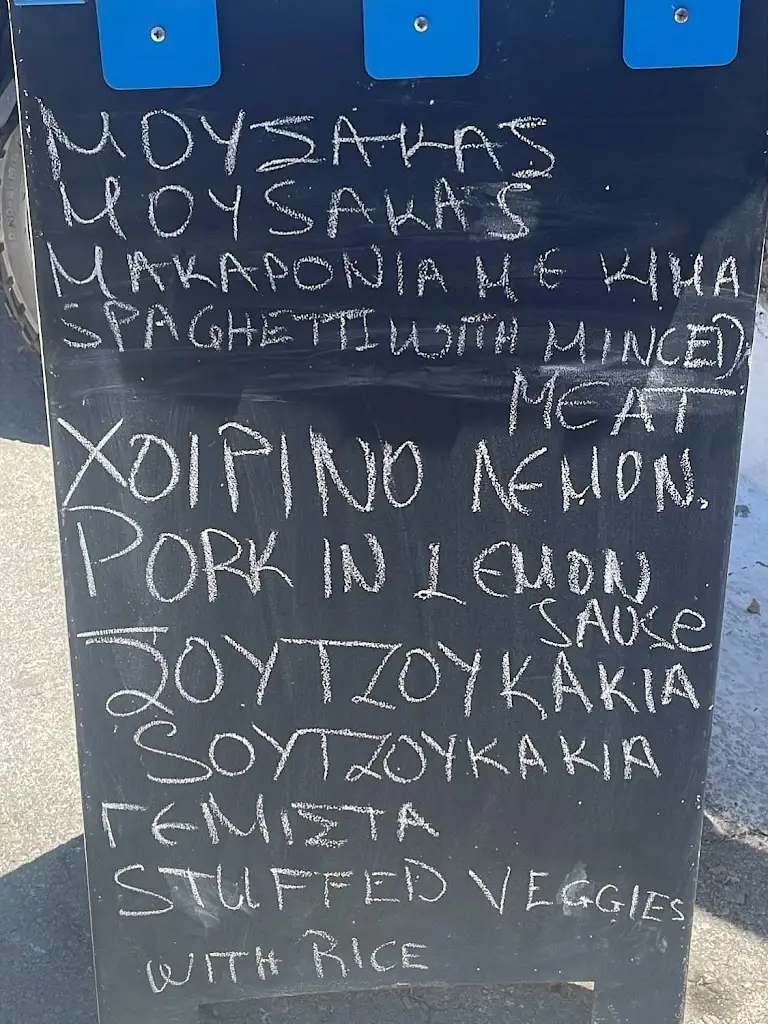 ΜΟΥΣΑΚΑΣ
MOYSAKAS
ΜΑΚΑΡΟΝΙΑ ΜΕ ΚΙΜΑ
SPAGHETTI WITH MINCED
MEAT
ΧΟΙΡΙΝΟ ΛΕΜΟΝ.
PORK IN LEMON
SAUSE
ΣΟΥΤΖΟΥΚΑΚΙΑ
SOYTZOYKAKIA
ΓΕΜΙΣΤΑ
STUFFED VEGGIES
WITH RICE